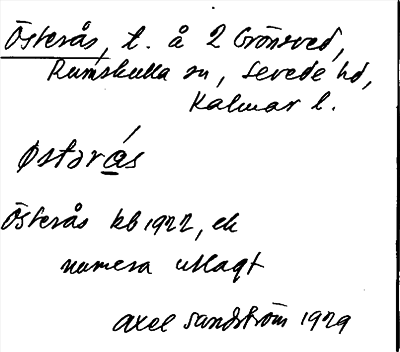 Österås, t. å 2 Grönsved,
Rumskulla sn, Sevede hd,
Kalmar l.
østərás
Österås kb 1922, ek
numera utlagt
Axel Sandström 1929